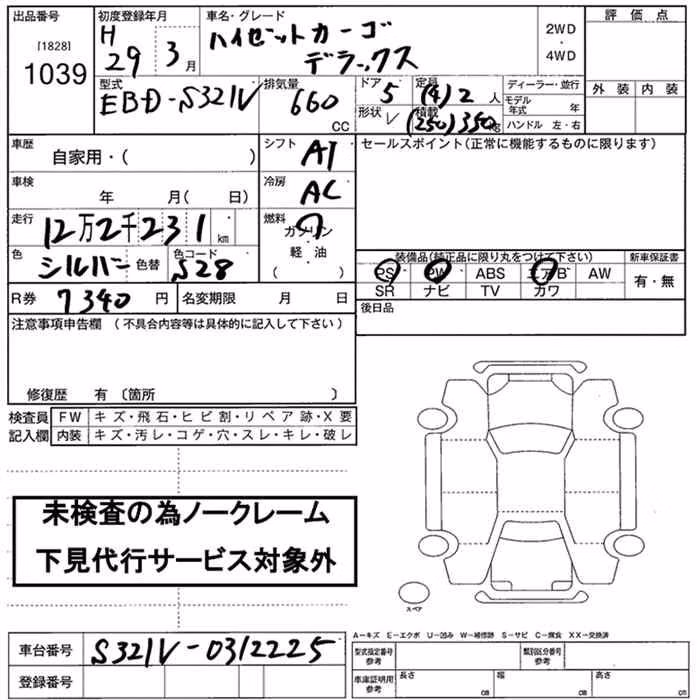 出品番号 初度登録年月 車名・グレード 評価点
[1828] H 29 3月 ハイゼットカーゴ 2WD
1039 デラックス ・ 4WD
型式 排気量 ドア 定員 ディーラー・並行 外装 内装
EBD-S321V 660 CC 5 (4)2人 モデル年式 年
形状 V 積載 (250)350kg ハンドル 左・右
車歴 自家用・( ) シフト AT セールスポイント(正常に機能するものに限ります)
車検 年 月( 日) 冷房 AC
走行 12万2千231km 燃料 ガソリン
軽・油
( )
色 シルバー 色替 色コード S28
装備品(純正品に限り丸をつけて下さい) 新車保証書
PS PW ABS エアB AW 有・無
SR ナビ TV カワ
R券 7340円 名変期限 月 日 後日品
注意事項申告欄(不具合内容等は具体的に記入して下さい)
修復歴 有〔箇所 〕
検査員 FW キズ・飛石・ヒビ割・リペア跡・X要
記入欄 内装 キズ・汚レ・コゲ・穴・スレ・キレ・破レ
未検査の為ノークレーム
下見代行サービス対象外
スペア
A-キズ E-エクボ U-凹み W-補修跡 S-サビ C-腐食 XX-交換済
車台番号 S321V-0312225 型式指定番号 参考 類別区分番号 参考
登録番号 車庫証明用 参考 長さ cm 幅 cm 高さ cm